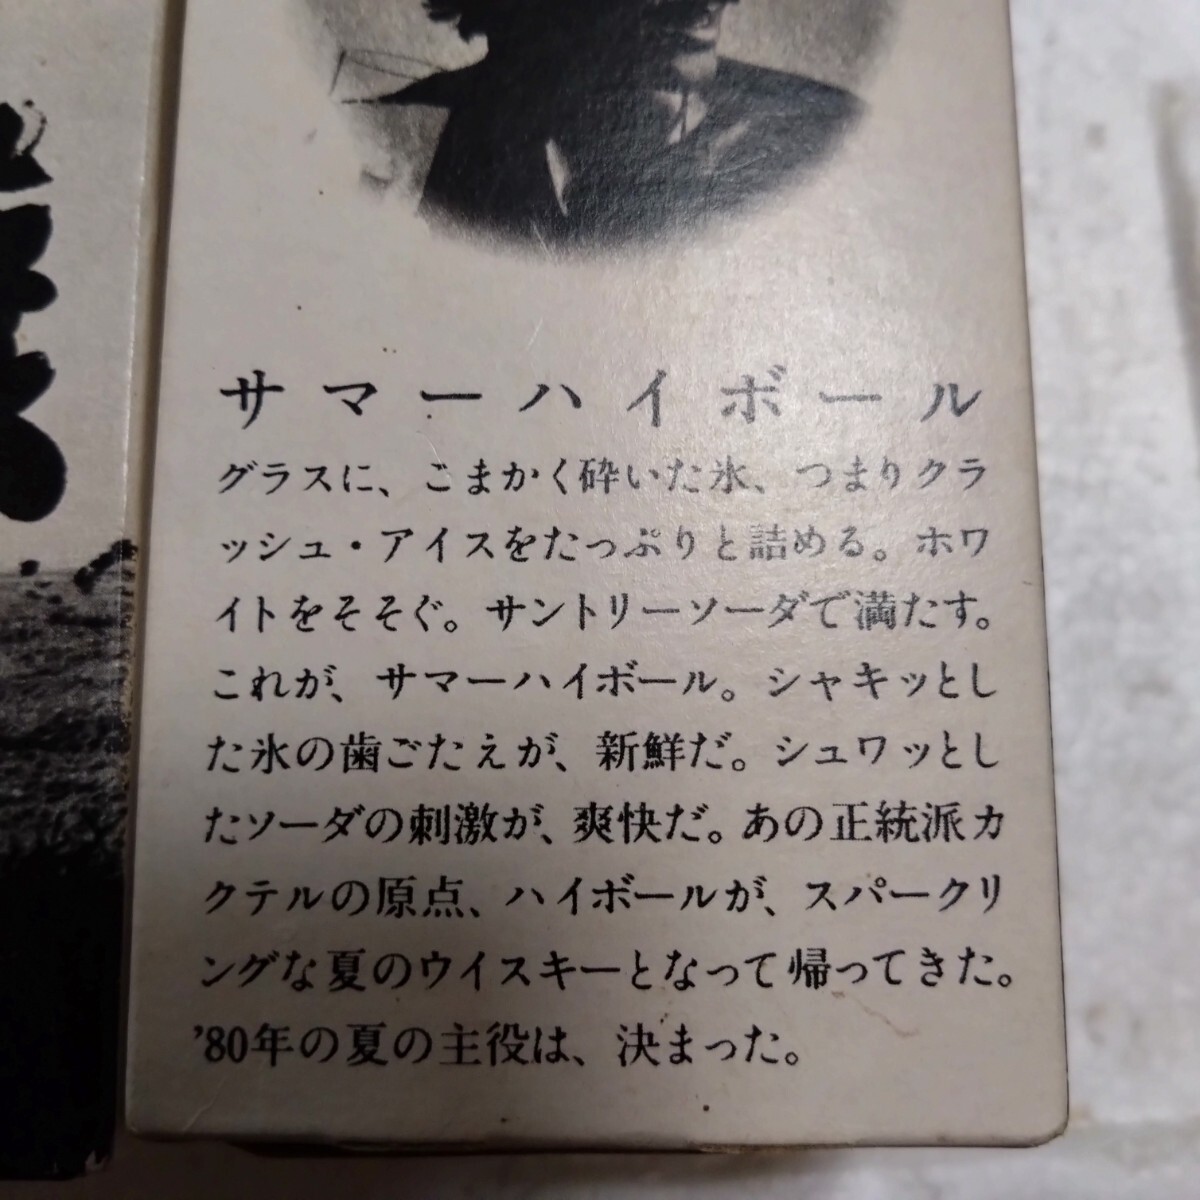 サマーハイボール
グラスに、こまかく砕いた氷、つまりクラ
ッシュ・アイスをたっぷりと詰める。ホワ
イトをそそぐ。サントリーソーダで満たす。
これが、サマーハイボール。シャキッとし
た氷の歯ごたえが、新鮮だ。シュワッとし
たソーダの刺激が、爽快だ。あの正統派カ
クテルの原点、ハイボールが、スパークリ
ングな夏のウイスキーとなって帰ってきた。
'80年の夏の主役は、決まった。